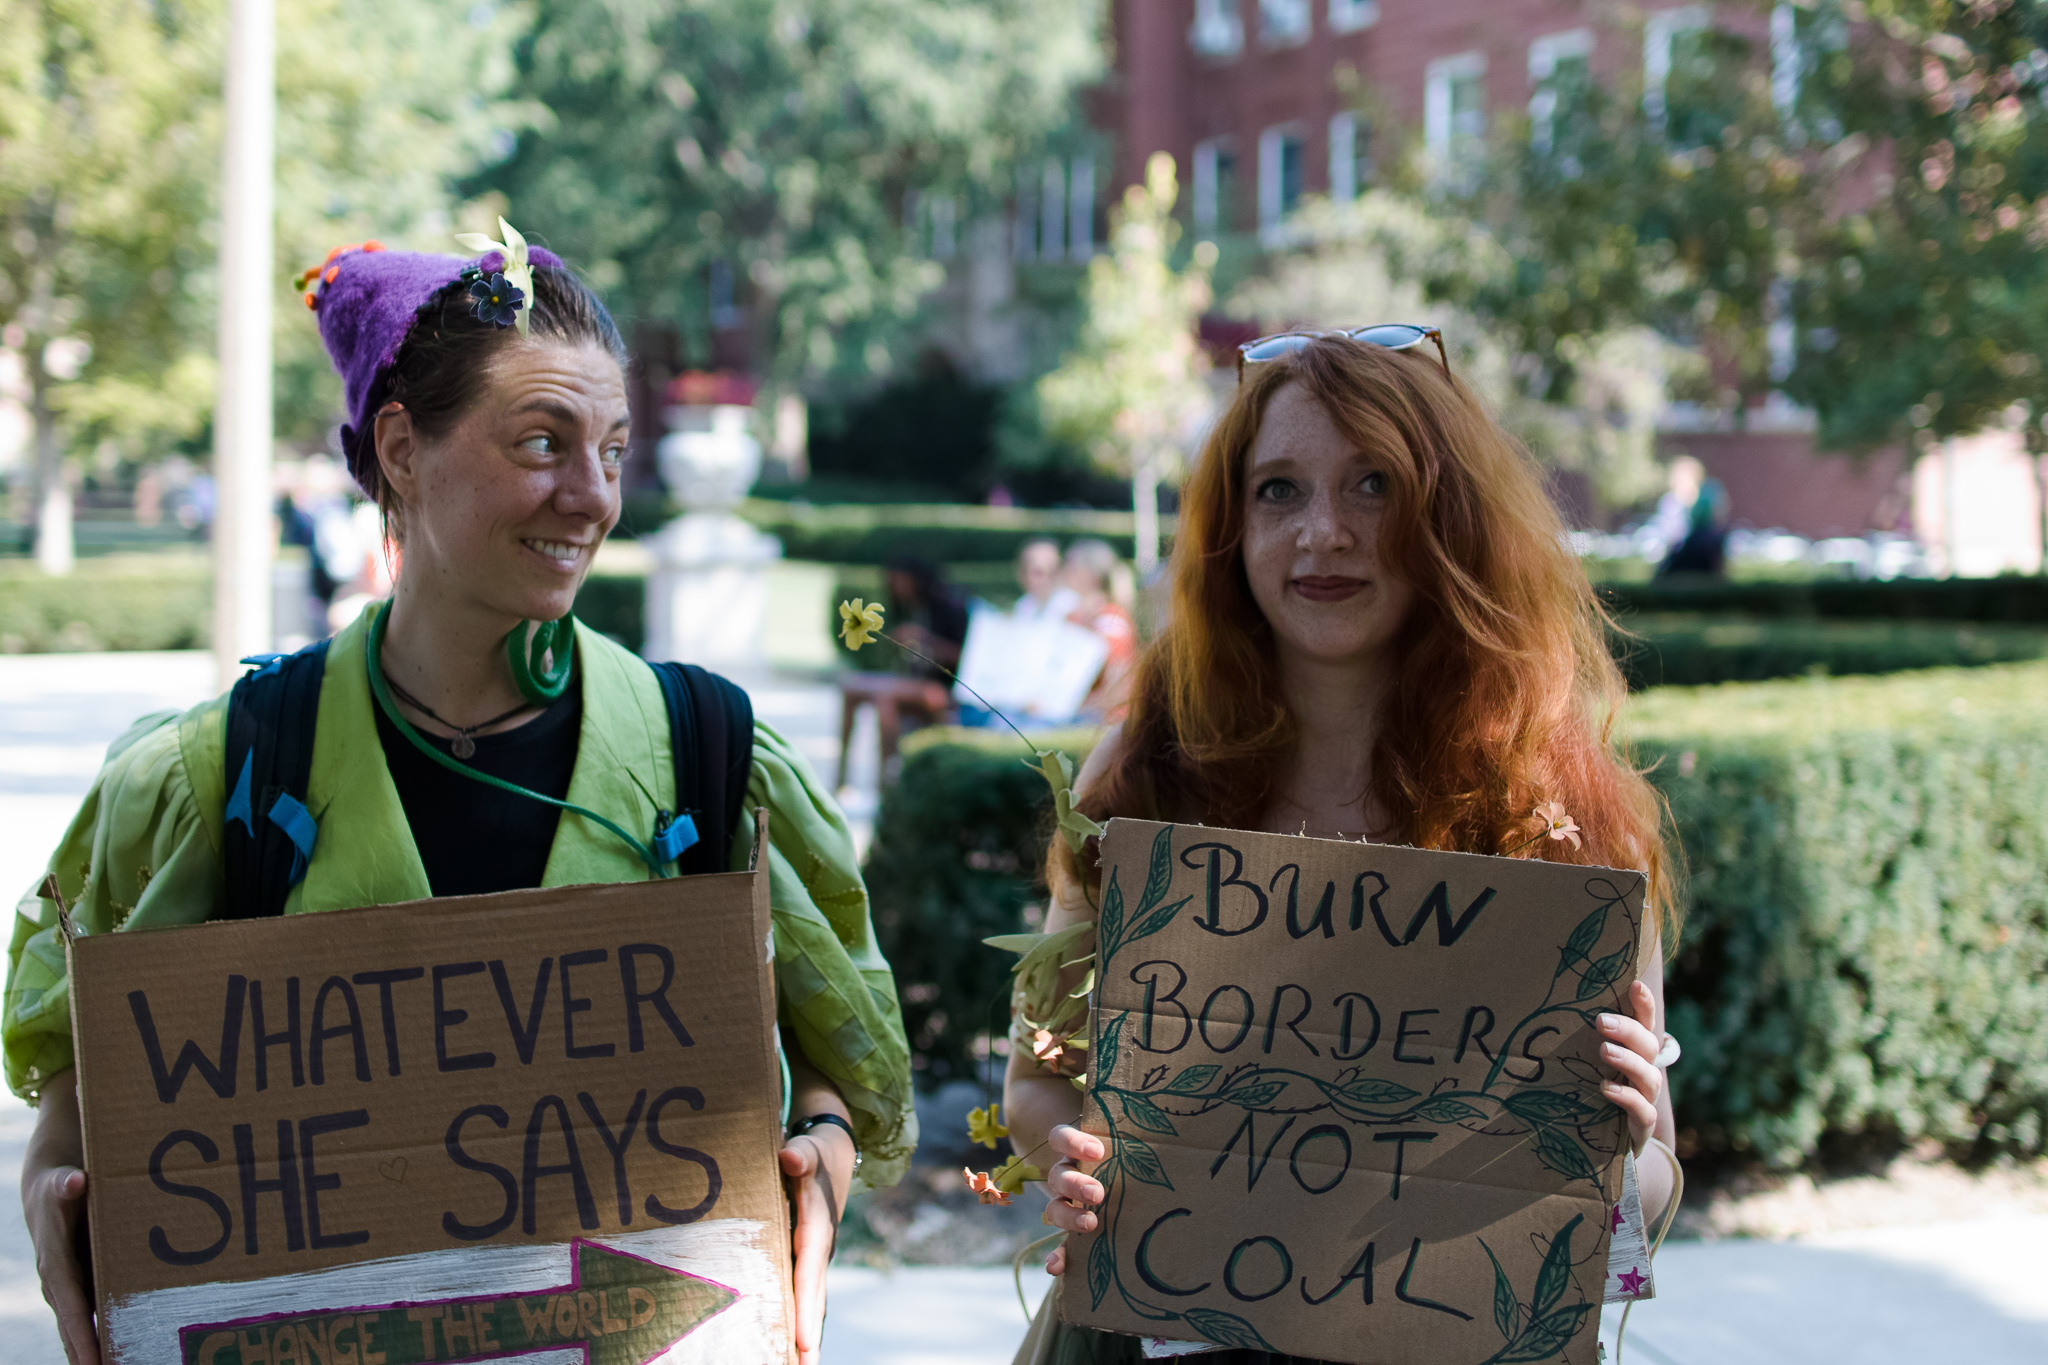 WHATEVER
SHE SAYS
CHANGE THE WORLD
BURN
BORDERS
NOT
COAL